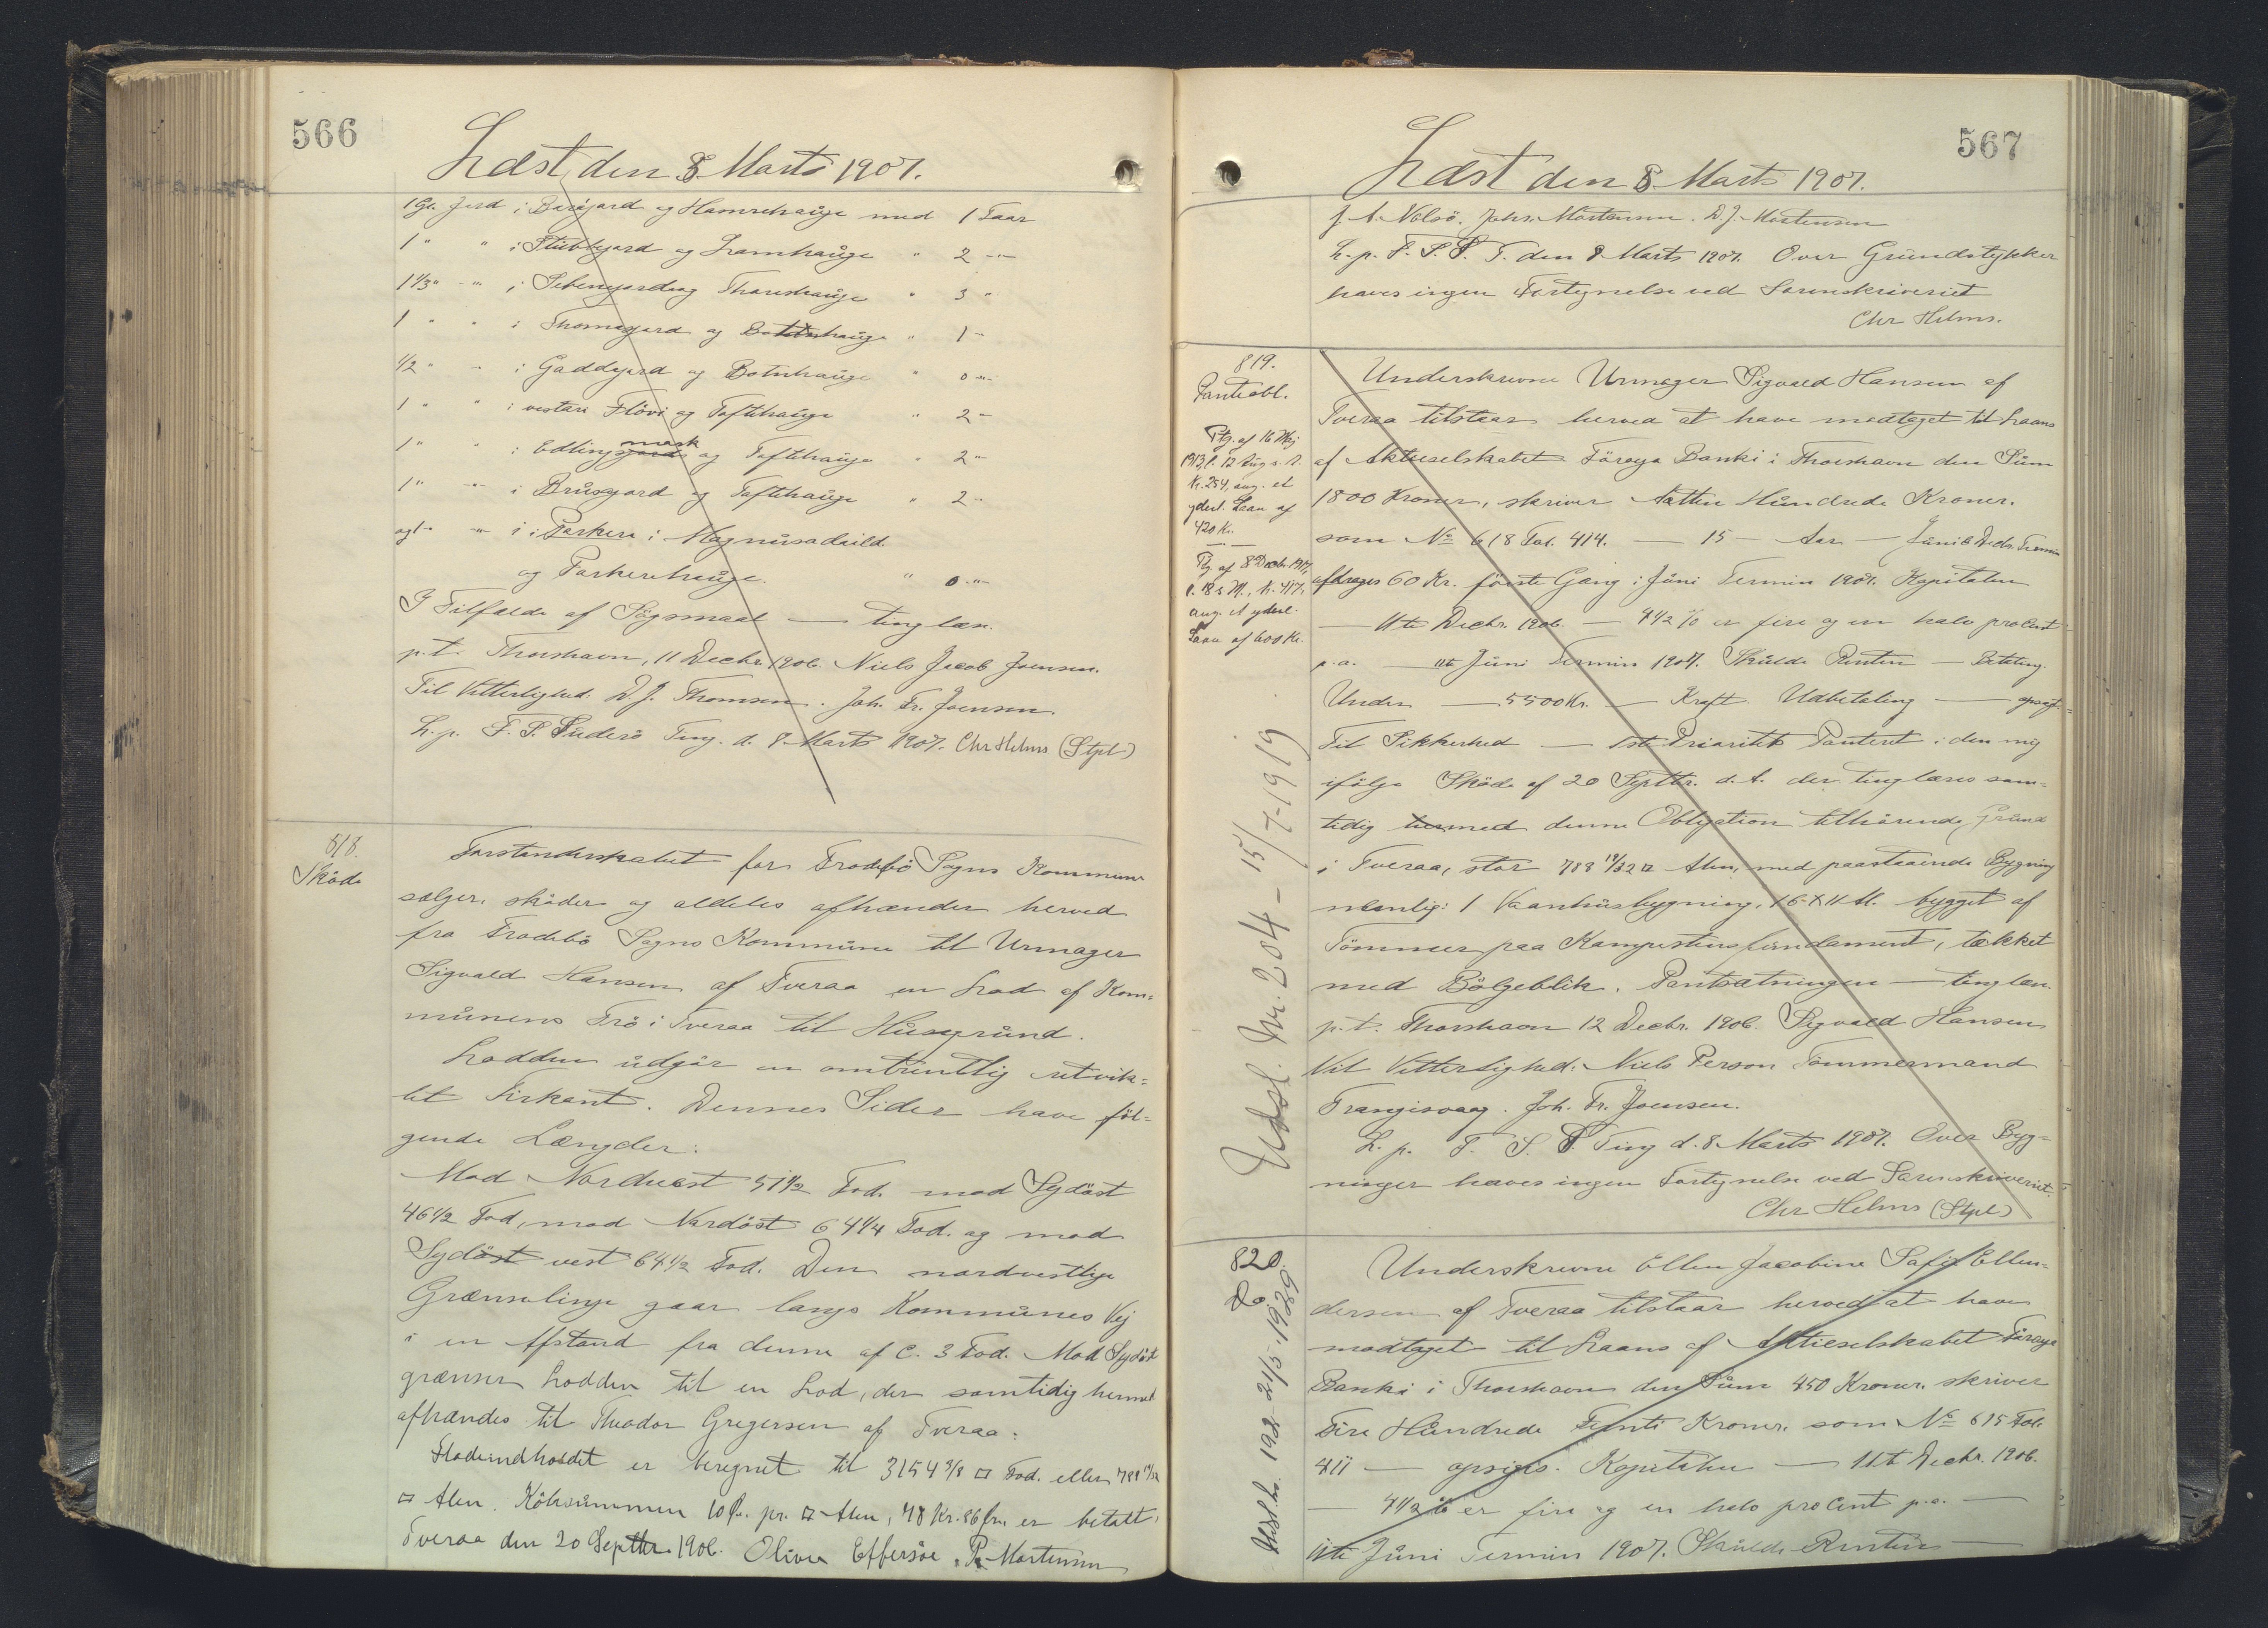 566
Læst den 8 Marts 1907.
1 Gl. Jord i Bæigard og Hamrehauge med 1 Faar
1 " " i Stubbgard og Framhauge " 2 "
1 1/3 " " i Sebengard og Thoreshauge " 3 "
1 " " i Thomagard og Botnhauge " 1 "
1/2 " " i Gaddgard og Botnhauge " 0 "
1 " " i vestari Flövi og Toftehauge " 2 "
1 " " i Edlingsmark og Toftehauge " 2 "
1 " " i Brusgard og Toftehauge " 2 "
og 1 " i Parkere i Magnusadeild
og Parkerehauge. " 0 "
I Tilfælde af Sögsmaal — tinglæs.
p.t. Thorshavn, 11 Decbr. 1906. Niels Jacob Joensen.
Til Vitterlighed: D. J. Thomsen. Joh. Fr. Joensen.
L. p. F. S. Suderö Ting. d. 8 Marts 1907. Chr Helms (Stpl)
818.
Sköde
Forstanderskabet for Frodebö Sogns Kommune
sælger, sköder og aldeles afhænder herved
fra Frodebö Sogns Kommune til Urmager
Sigvald Hansen af Tveraa en Lod af Kom-
munens Trö i Tveraa til Husegrund.
Lodden udgör en omtrentlig retvink-
let Firkant. Dennes Sider have föl-
gende Længder:
Mod Nordvest 51 1/2 Fod. mod Sydöst
46 1/2 Fod, mod Nordöst 64 1/4 Fod. og mod
Sydöst vest 64 1/2 Fod. Den nordvestlige
Grænselinje gaar langs Kommunes Vej
i en Afstand fra denne af c. 3 Fod. Mod Sydöst
grænser Lodden til en Lod, der samtidig hermed
afhændes til Theodor Gregersen af Tveraa:
Fladeindholdet er beregnet til 3154 3/8 □ Fod. eller 788 19/32
□ Alen. Köbesummen 10 Ör. pr. □ Alen, 78 Kr. 86 Ör. er betalt.
Tveraa den 20 Septbr. 1906. Oliver Effersöe. P. Mortensen
567
Læst den 8 Marts 1907.
J. A. Nolsö. Johs. Mortensen. D. J. Mortensen
L. p. F. S. S. T. den 8 Marts 1907. Over Grundstykker
haves ingen Fortegnelse ved Sorenskriveriet
Chr Helms.
819.
Panteobl.
Ptg. af 16 Maj
1913, l. 12 Aug. s. A.
Nr. 254, ang. et
yderl. Laan af
420 Kr.
Ptg. af 8 Decbr. 1917,
ang. et yderl.
Laan af 600 Kr.
Udsl. Nr. 204 - 15/7-1919
Underskrevne Urmager Sigvald Hansen af
Tveraa tilstaar herved at have modtaget til Laans
af Aktieselskabet Föroya Banki i Thorshavn den Sum
1800 Kroner, skriver Atten Hundrede Kroner.
som No 618 Fol. 414. — 15 — Aar — Juni & Decbr. Termin
afdrages 60 Kr. förste Gang i Juni Termin 1907. Kapitalen
— 11te Decbr. 1906. — 4 1/2 % er fire og en halv procent
p.a. — 11te Juni Termin 1907. Skulde Renten — Betaling.
Under — 5500 Kr. — Kraft Udbetaling — opsagt.
Til Sikkerhed — 1ste Prioritets Panteret i den mig
ifölge Sköde af 20 Septbr. d. A. der tinglæses sam-
tidig hermed denne Obligation tilhörende Grund
i Tveraa, stor 788 19/32 □ Alen, med paastaaende Bygning
nemlig: 1 Vaanhusbygning, 15 X 11 Al. bygget af
Tömmer paa Kampestensfundament, tækket
med Bölgeblik. Pantsætningen — tinglæs.
p.t. Thorshavn 12 Decbr. 1906. Sigvald Hansen
Til Vitterlighed: Niels Person Tömmermand
Trangisvaag. Joh. Fr. Joensen.
L. p. F. S. S. Ting d. 8 Marts 1907. Over Byg-
ninger haves ingen Fortegnelse ved Sorenskriveriet.
Chr Helms (Stpl)
820.
Do
Underskrevne Ellen Jacobine Sofie Ellen-
dersen af Tveraa tilstaar herved at have
modtaget til Laans af Aktieselskabet Föroya
Banki i Thorshavn den Sum 450 Kroner. skriver
Fire Hundrede Femti Kroner. som No 615 Fol.
411 — opsiges. Kapitalen — 11te Decbr. 1906.
— 4 1/2 % er fire og en halv proCent p.a. —
11te Juni Termin 1907. Skulde Renten —